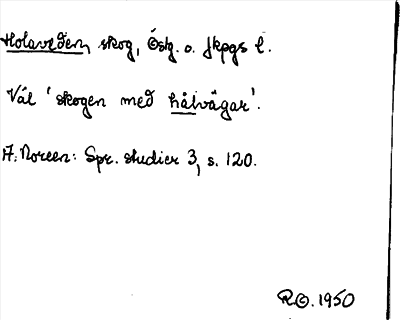 Holaveden, skog, Östg. o. Jkpgs l.
Väl 'skogen med hålvägar'.
A. Noreen: Spr. studier 3, s. 120.
R©. 1950